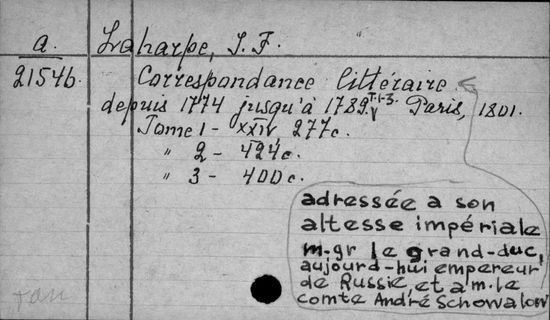 a. Laharpe, J. F.
2154b. Correspondance littéraire
depuis 1774 jusqu'à 1789. T. 1-3. Paris, 1801.
Tome 1 - XXIV, 277c.
" 2 - 424c.
" 3 - 400c.
adressée a son
altesse impériale
m-gr le grand-duc,
aujourd-hui empereur
de Russie, et a m. le
comte André Schowalow